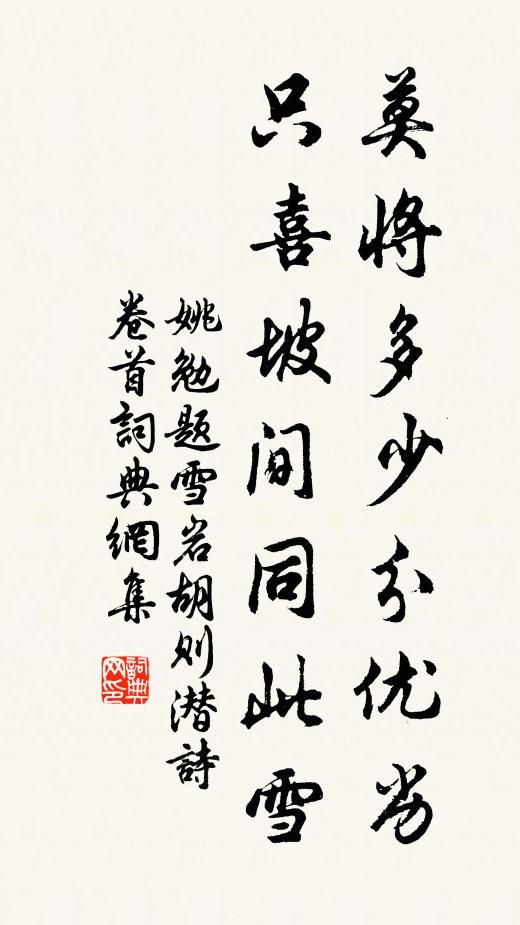 莫將多少分优劣
只喜坡間同此雪
姚勉題雪岩胡则潜詩
卷首詞典網集
詞典网印